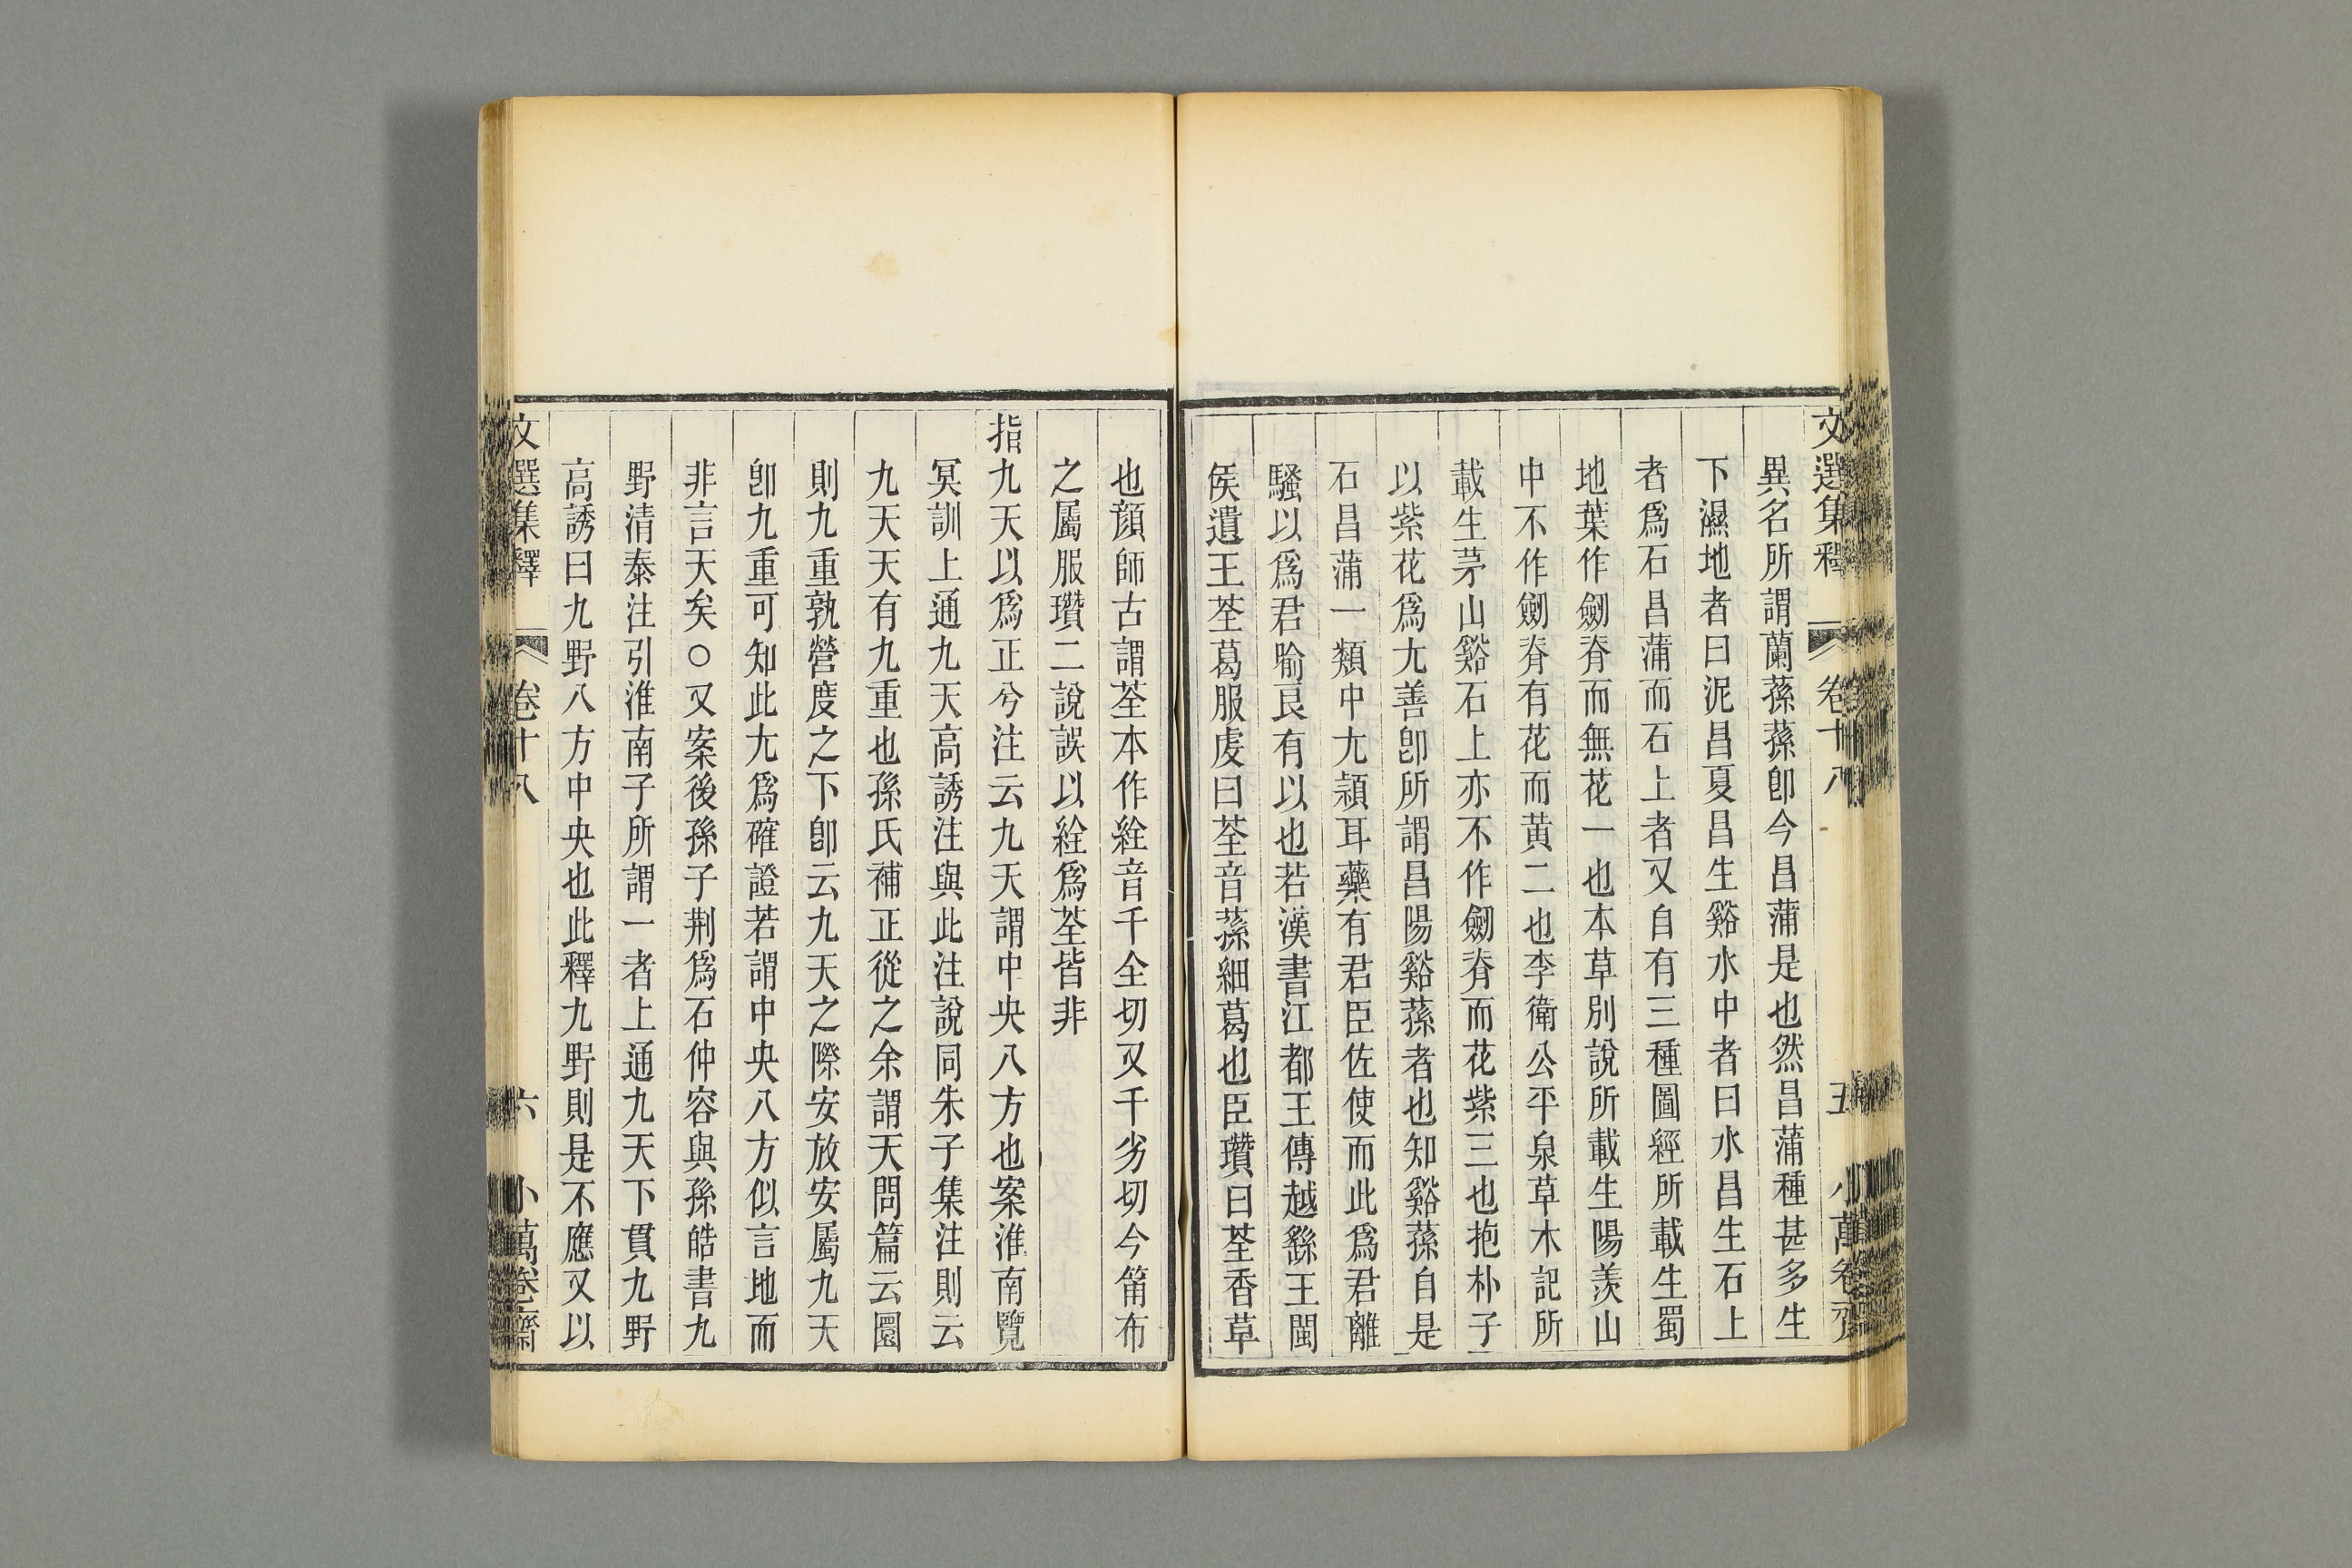 文選集釋 卷十八 五 小萬卷齋
異名所謂蘭蓀蓀卽今昌蒲是也然昌蒲種甚多生
下濕地者曰泥昌夏昌生谿水中者曰水昌生石上
者爲石昌蒲而石上者又自有三種圖經所載生蜀
地葉作劒脊而無花一也本草別說所載生陽羨山
中不作劒脊有花而黃二也李衛公平泉草木記所
載生茅山谿石上亦不作劒脊而花紫三也抱朴子
以紫花爲尢善卽所謂昌陽谿蓀者也知谿蓀自是
石昌蒲一類中尢頴耳藥有君臣佐使而此爲君離
騷以爲君喻良有以也若漢書江都王傳越繇王閩
矦遺王荃葛服虔曰荃音蓀細葛也臣瓚曰荃香草
也顏師古謂荃本作絟音千全切又千劣切今筩布
之屬服瓚二說誤以絟爲荃皆非
指九天以爲正兮注云九天謂中央八方也案淮南覽
冥訓上通九天高誘注與此注說同朱子集注則云
九天天有九重也孫氏補正從之余謂天問篇云圜
則九重孰營度之下卽云九天之際安放安屬九天
卽九重可知此尢爲確證若謂中央八方似言地而
非言天矣○又案後孫子荆爲石仲容與孫皓書九
野清泰注引淮南子所謂一者上通九天下貫九野
高誘曰九野八方中央也此釋九野則是不應又以
文選集釋 卷十八 六 小萬卷齋